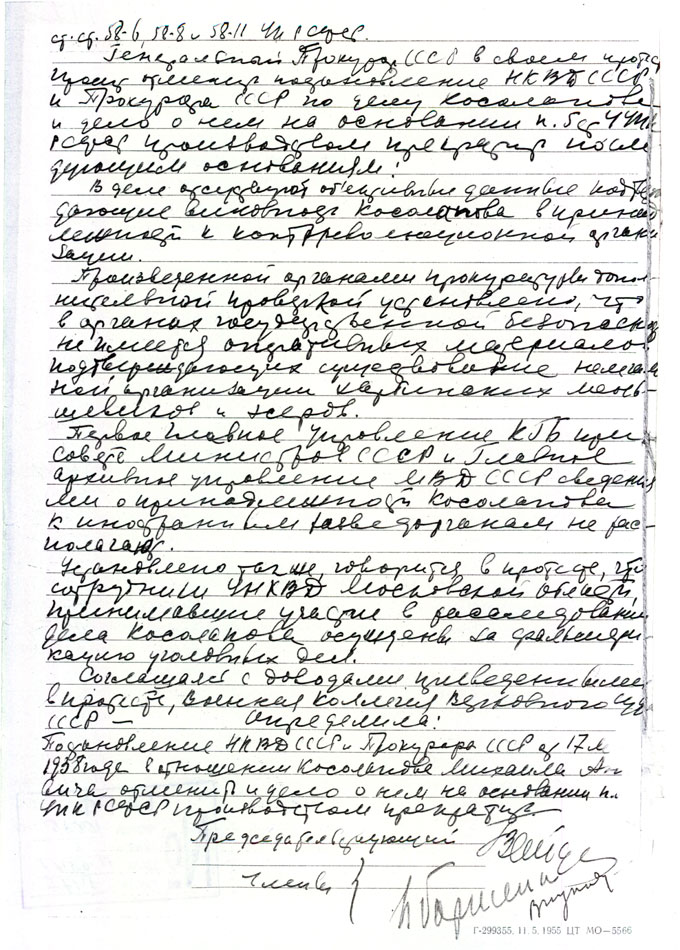 ст.ст. 58-6, 58-8 и 58-11 УК РСФСР.
Генеральный Прокурор СССР в своем протесте
просит отменить постановление НКВД СССР
и Прокурора СССР по делу Косолапова
и дело о нем на основании п. 5 ст 4 УПК
РСФСР производством прекратить по сле-
дующим основаниям:
В деле отсутствуют объективные данные подтвер-
дающие виновность Косолапова в принад-
лежности к контрреволюционной органи
зации.
Произведенной органами прокуратуры допол-
нительной проверкой установлено, что
в органах государственной безопасно
не имеется оперативных материалов
подтверждающих существование нелегаль
ной организации меньш-
шевиков и эсеров.
Первое Главное управление КГБ при
совете министров СССР и Главное
архивное управление МВД СССР сведения
ми о принадлежности Косолапова
к иностранным разведорганам не рас-
полагают.
Установлено также, говорится в протесте, что
сотрудники УНКВД Московской области,
принимавшие участие в расследовании
дела Косолапова осуждены за фальсифи-
кацию уголовных дел.
Соглашаясь с доводами приведенными
в протесте, Военная Коллегия Верховного суда
СССР — определила:
Постановление НКВД СССР и Прокурора СССР от 17
1938 года в отношении Косолапова Михаила
вича отменить и дело о нем на основании п.
УПК РСФСР производством прекратить.
Председательствующий
Члены
Г-299355, 11. 5. 1955 ЦТ МО—5566